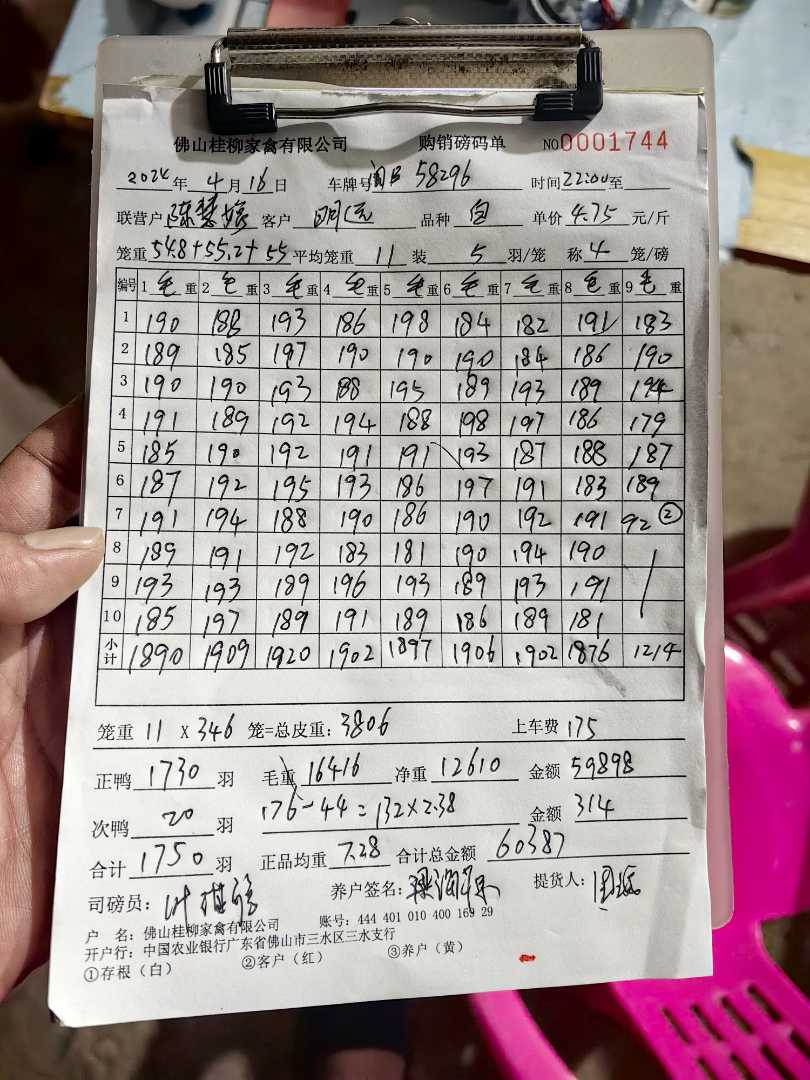 佛山桂柳家禽有限公司 购销磅码单 NO0001744
2024年4月16日 车牌号 58296 时间22:00至
联营户 陈 客户 明 品种 白 单价 4.75 元/斤
笼重 54.8+55.2+55 平均笼重 11 装 5 羽/笼 称 4 笼/磅
编号 1 毛 重 2 毛 重 3 毛 重 4 毛 重 5 毛 重 6 毛 重 7 毛 重 8 毛 重 9 毛 重
1 190 188 193 186 198 184 182 191 183
2 189 185 197 190 190 190 184 186 190
3 190 190 193 188 195 189 193 189 194
4 191 189 192 194 188 198 197 186 179
5 185 190 192 191 191 193 187 188 187
6 187 192 195 193 186 197 191 183 189
7 191 194 188 190 186 190 192 191 92 ②
8 189 191 192 183 181 190 194 190
9 193 193 189 196 193 189 193 191
10 185 197 189 191 189 186 189 181
小计 1890 1909 1920 1902 1897 1906 1902 1876 1214
笼重 11 X 346 笼=总皮重: 3806 上车费 175
正鸭 1730 羽 毛重 16416 净重 12610 金额 59898
次鸭 20 羽 176-44=132×2.38 金额 314
合计 1750 羽 正品均重 7.28 合计总金额 60387
司磅员: 叶 养户签名: 梁 提货人:
户 名: 佛山桂柳家禽有限公司 账号: 444 401 010 400 169 29
开户行: 中国农业银行广东省佛山市三水区三水支行
①存根（白） ②客户（红） ③养户（黄）